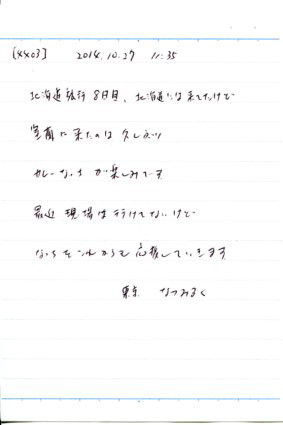 [4403] 2014.10.27 11:35
北海道旅行8日目、北海道には来てたけど
室蘭に来たのは久しぶり
カレーなっち が楽しみです
最近 現場は行けてないけど
なっちをこれからも応援していきます
東京 なつみるく